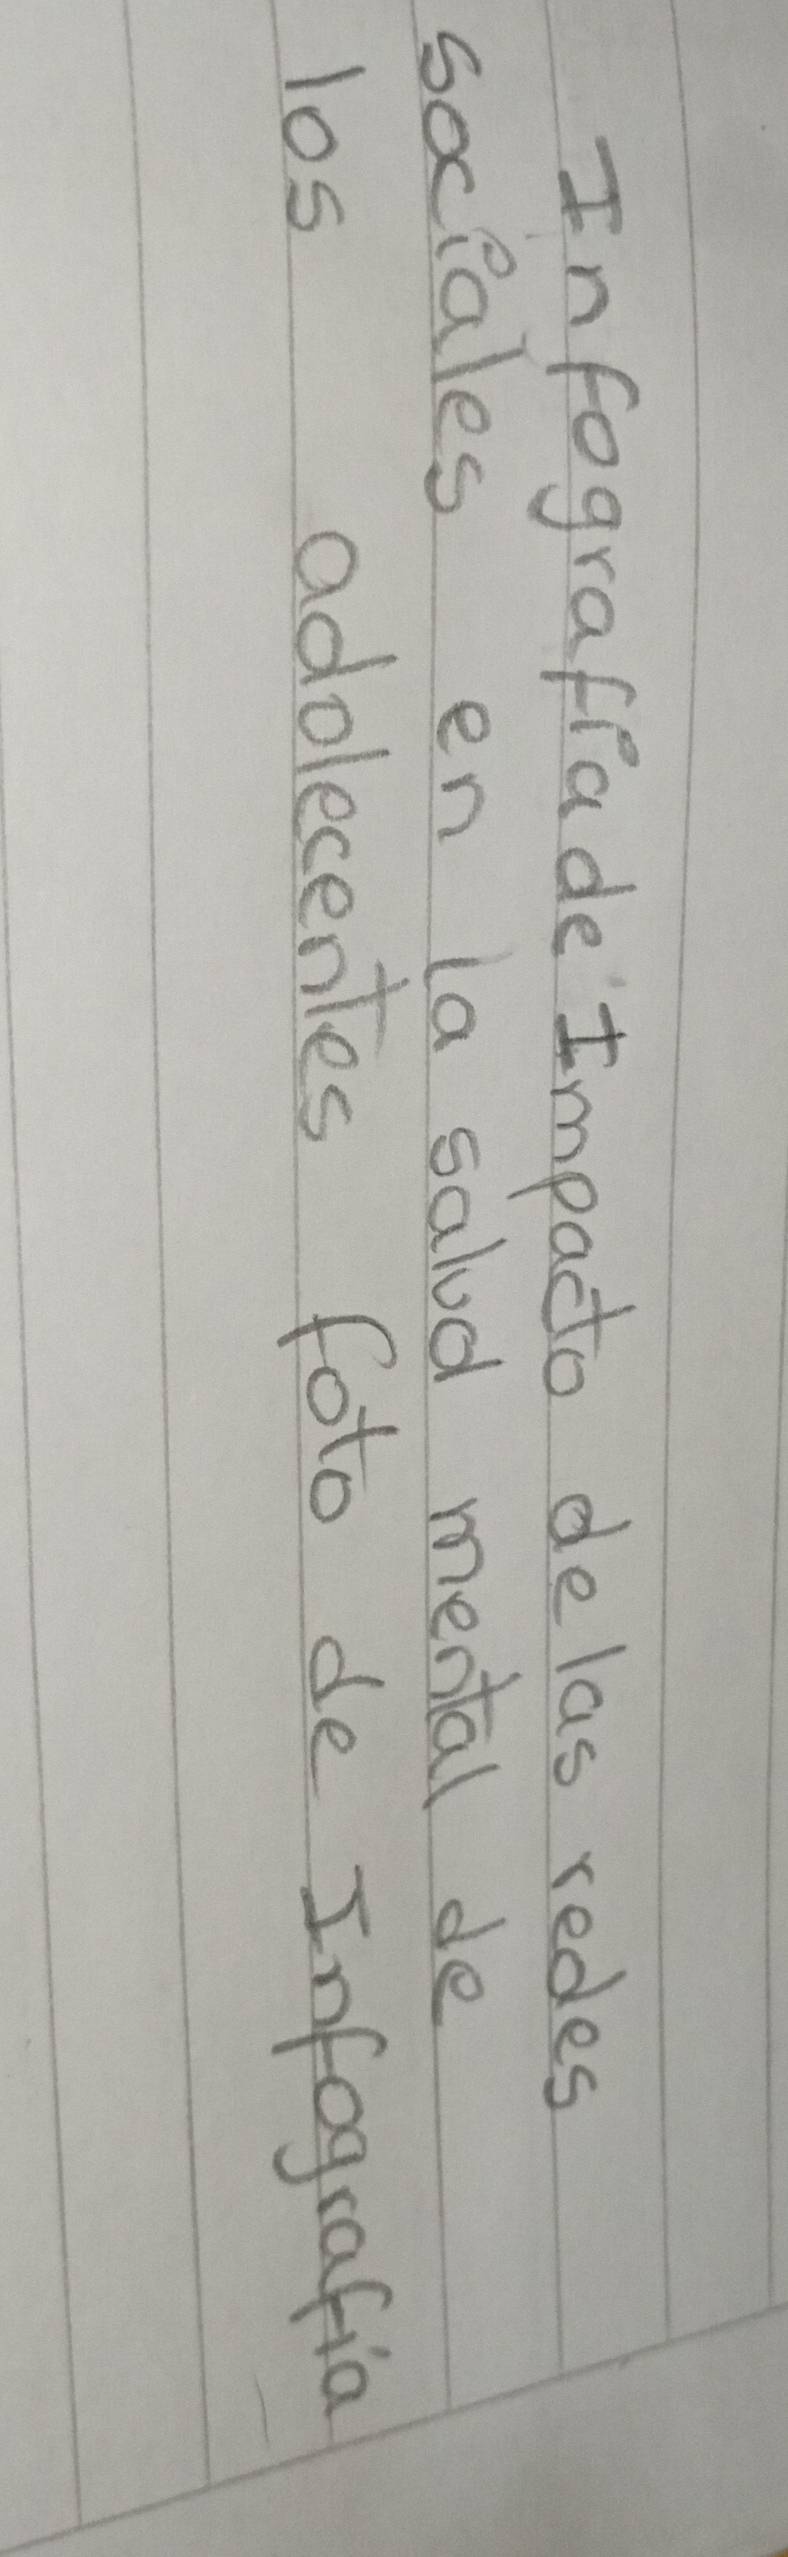 Infografia de Impacto de las redes
sociales en la salud mental de
los adolecentes foto de Infografia